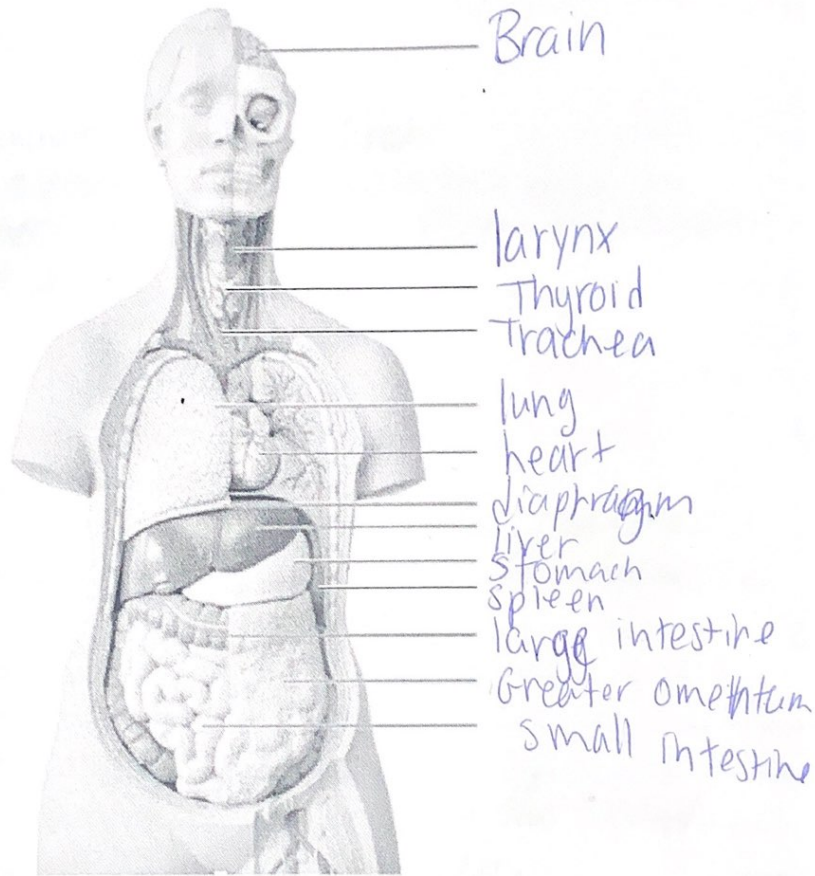 Brain
larynx
Thyroid
Trachea
lung
heart
diaphragm
liver
stomach
spleen
large intestine
Greater omentum
small intestine